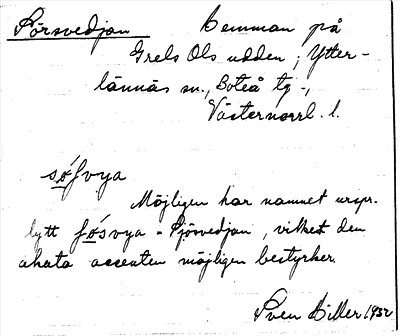 Sörsvedjan Hemman på
Grels Ols udden; Ytter-
lännäs sn., Boteå tg.,
Västernorrl. l.
sófvya
Möjligen har namnet urspr.
lytt fósvya - Sjösvedjan, vilket den
akuta accenten möjligen bestyrker.
Sven Hiller 1932